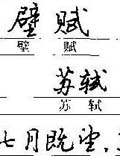 壁赋
壁 赋
苏轼
苏 轼
七月既望,